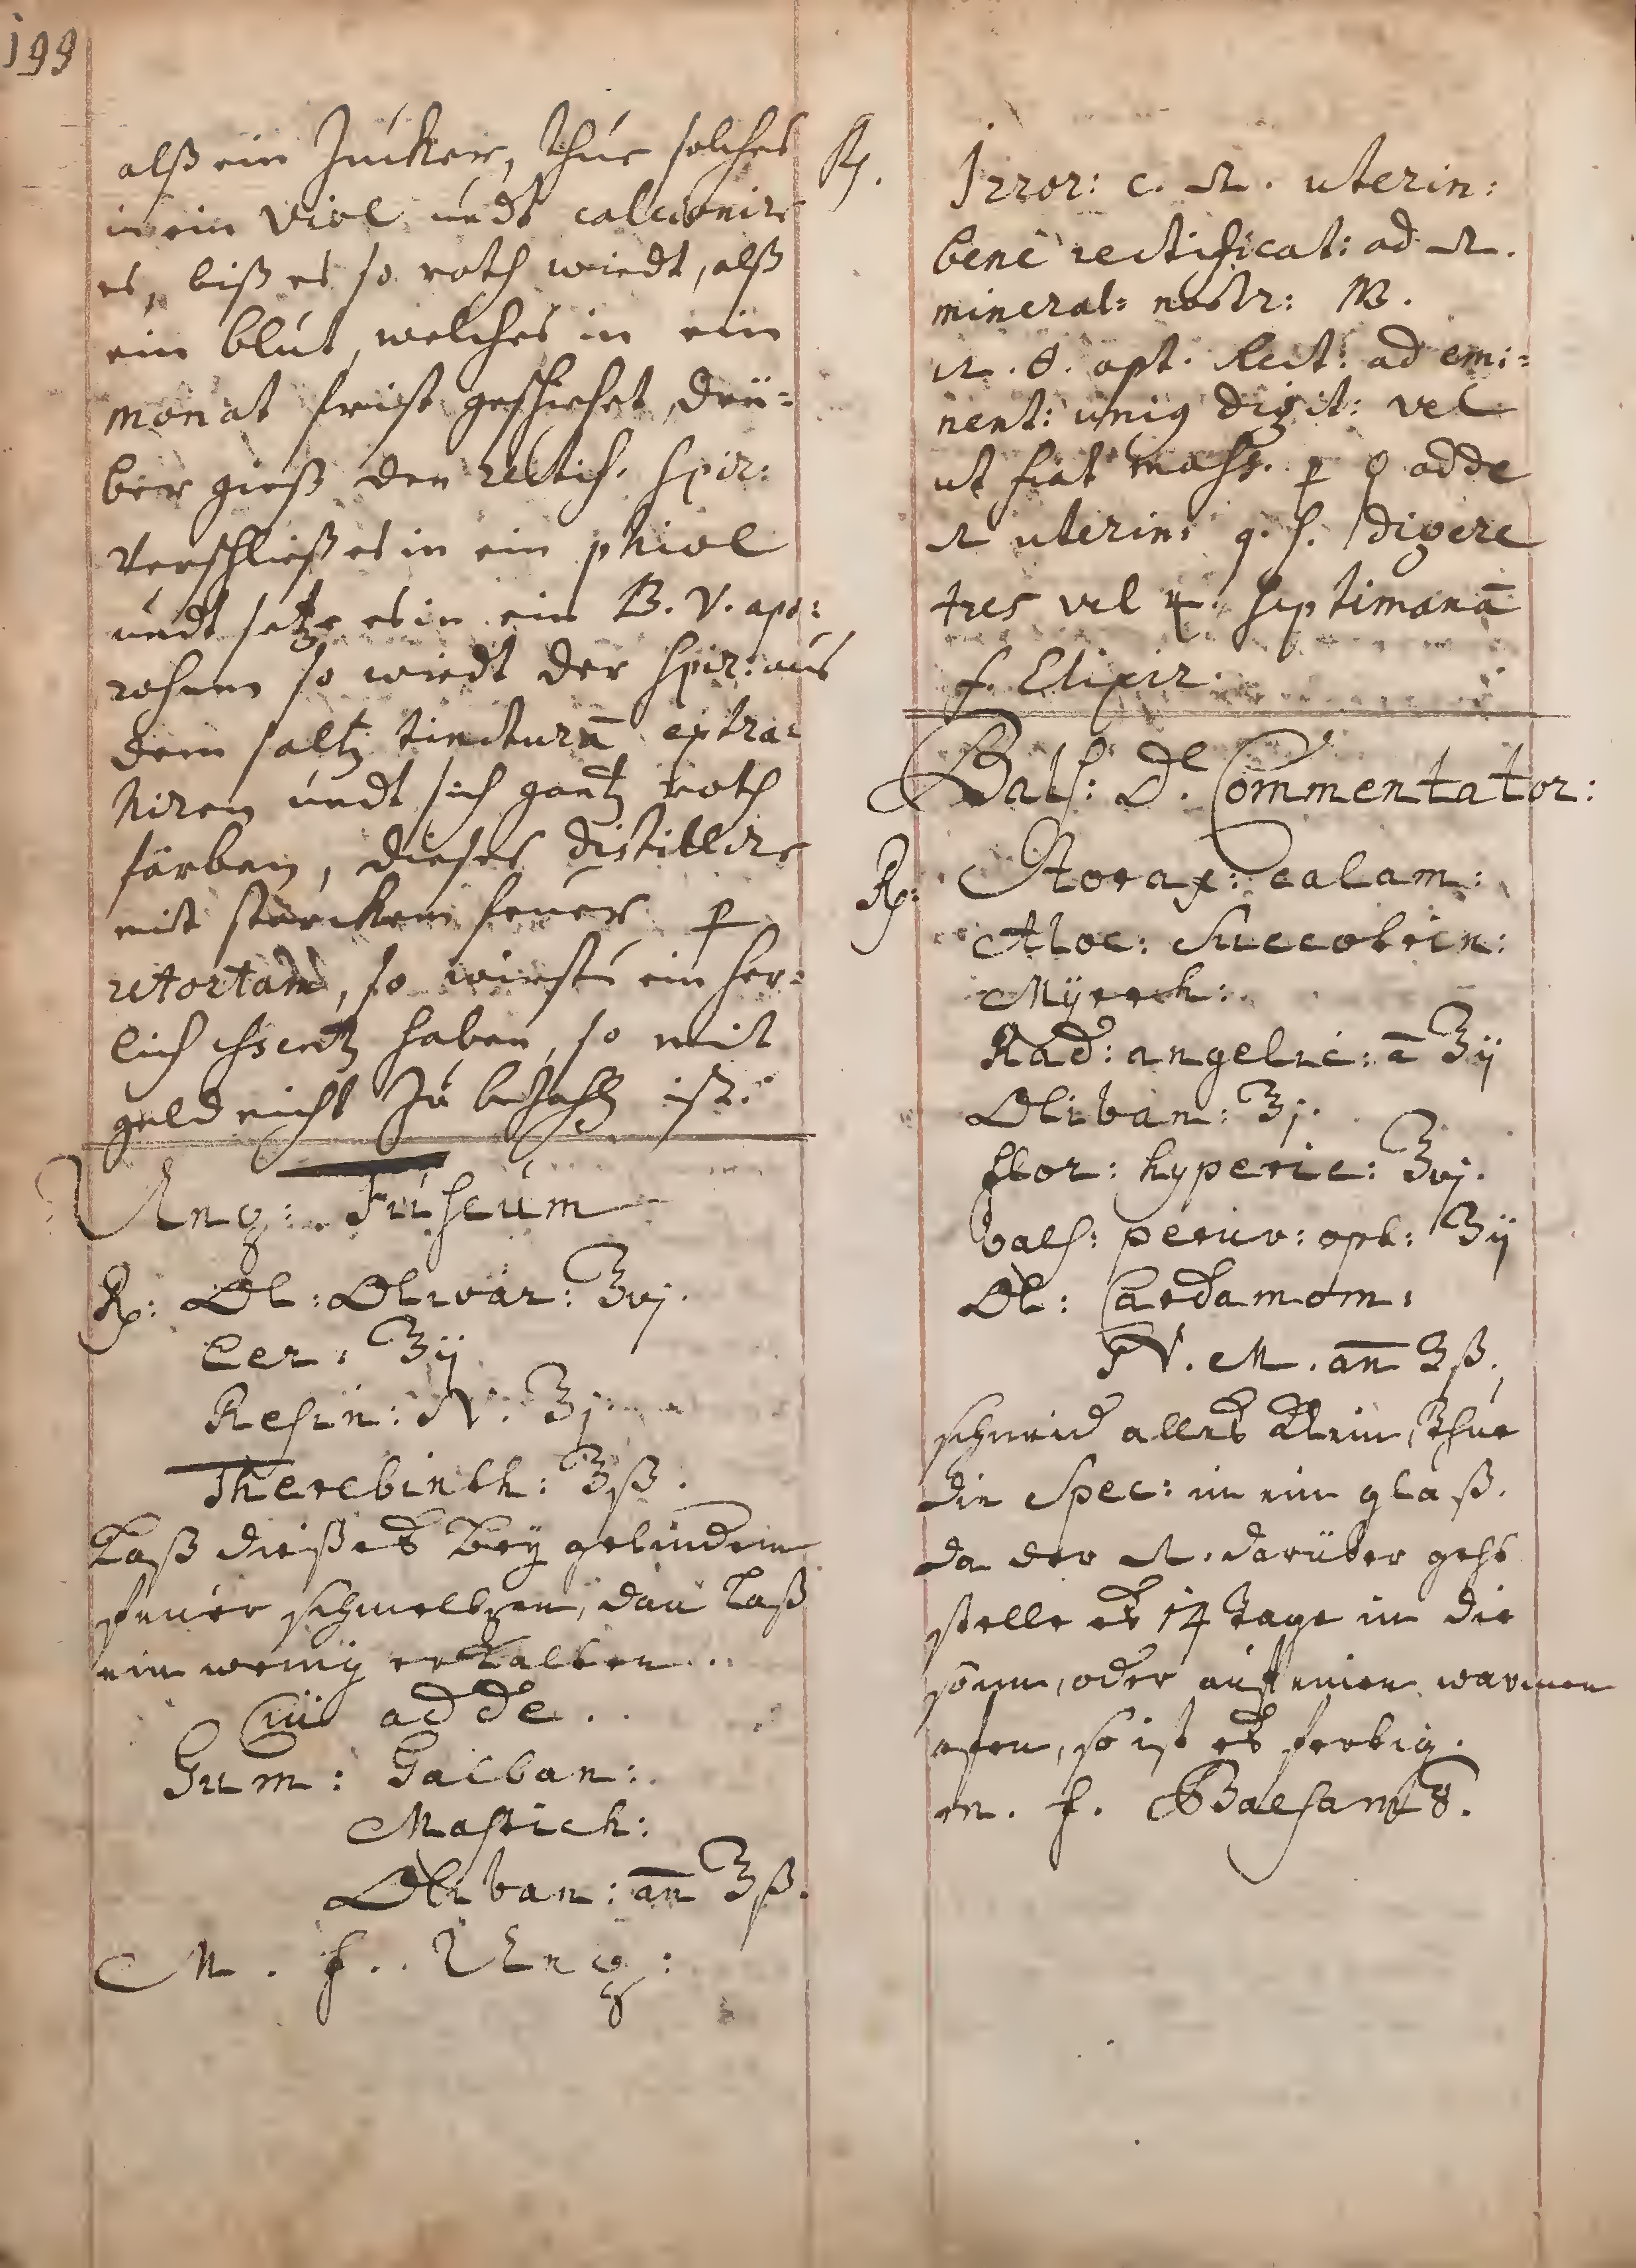 199
alß ein Zucker, thue solches
in ein Viol undt calcionire
es, biß es so roth wiedt, alß
ein blut, welches in ein
monat frist geschiehet, drü=
ber gieß den rectif. spir:
Verschließ es in ein phiol
undt setze es in ein B. V.
so wiedt der spir: aus
dem saltz tincturā extra=
hiren undt sich gantz roth
färben, dieses distillire
mit starcken feuer ꝑ
retortam, so wirstu ein her=
lich essentz haben, so mit
geld nicht zu bezahlen ist.
Ung: Fuscum
Rp: Ol: Olivar: ℥vj.
Cer: ℥ij
Resin: N: ℥j.
Therebinth: ℥ß.
Laß dießes bey gelindem
feuer schmeltzen, dan laß
ein wenig erkalten..
Cui adde.
Gum: Galban:
Mastich:
Oliban: an̄ ℥ß.
M. f. Ung:
Rp.
Irror: c. uterin:
bene rectificat: ad
mineral: nostr: M.
opt. Rect: ad emi=
nent: unig digit: vel
ut fiat mass. ꝑ adde
uterin: q. s. digere
tres vel 4. septimanā
f. Elixir.
Bals: de Commentator:
Rp: Storax: calam:
Aloe: Succotrin:
Myrrh:
Rad: angelic: ā ℥ij
Oliban: ℥j.
flor: hyperic: ℥vj.
bals: peruv: opt: ℥ij
Ol: Cardamom:
N. M. an̄ ℥ß.
schneid alles klein, thue
die Spec: in ein glaß.
da der darüber geht
stelle es 14 Tage in die
sonn, oder auf einen warmen
ofen, so ist es fertig.
m. f. Balsamus.